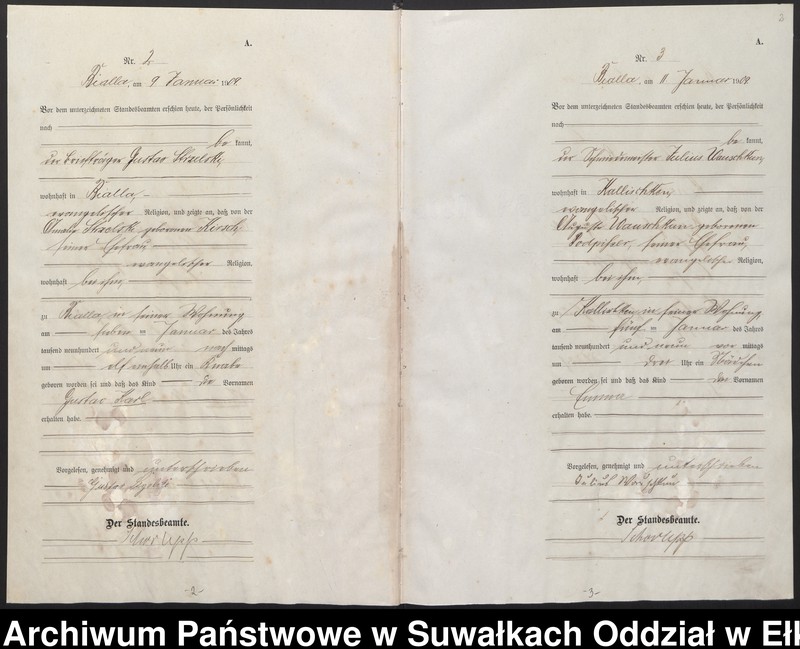 A.
Nr. 2
Bialla, am 9 Januar 1909.
Vor dem unterzeichneten Standesbeamten erschien heute, der Persönlichkeit
nach
be kannt,
der Briefträger Gustav
wohnhaft in Bialla,
evangelischer Religion, und zeigte an, daß von der
Amalie geborenen Kirsch,
seiner Ehefrau
evangelischer Religion,
wohnhaft bei ihm,
zu Bialla, in seiner Wohnung
am sieben ten Januar des Jahres
tausend neunhundert und neun nach mittags
um elf einhalb Uhr ein Knabe
geboren worden sei und daß das Kind die Vornamen
Gustav Karl
erhalten habe.
Vorgelesen, genehmigt und unterschrieben
Gustav
Der Standesbeamte.
A.
Nr. 3
Bialla, am 11 Januar 1909.
Vor dem unterzeichneten Standesbeamten erschien heute, der Persönlichkeit
nach
be kannt,
der Schmiedemeister Julius Wauschkun,
wohnhaft in Kallischken,
evangelischer Religion, und zeigte an, daß von der
Auguste Wauschkun geborenen
seiner Ehefrau,
evangelischer Religion,
wohnhaft bei ihm,
zu Kallischken, in seiner Wohnung
am fünf ten Januar des Jahres
tausend neunhundert und neun vor mittags
um drei Uhr ein Mädchen
geboren worden sei und daß das Kind den Vornamen
Emma
erhalten habe.
Vorgelesen, genehmigt und unterschrieben
Julius
Der Standesbeamte.
-2-
-3-
Archiwum Państwowe w Suwałkach Oddział w Ełk